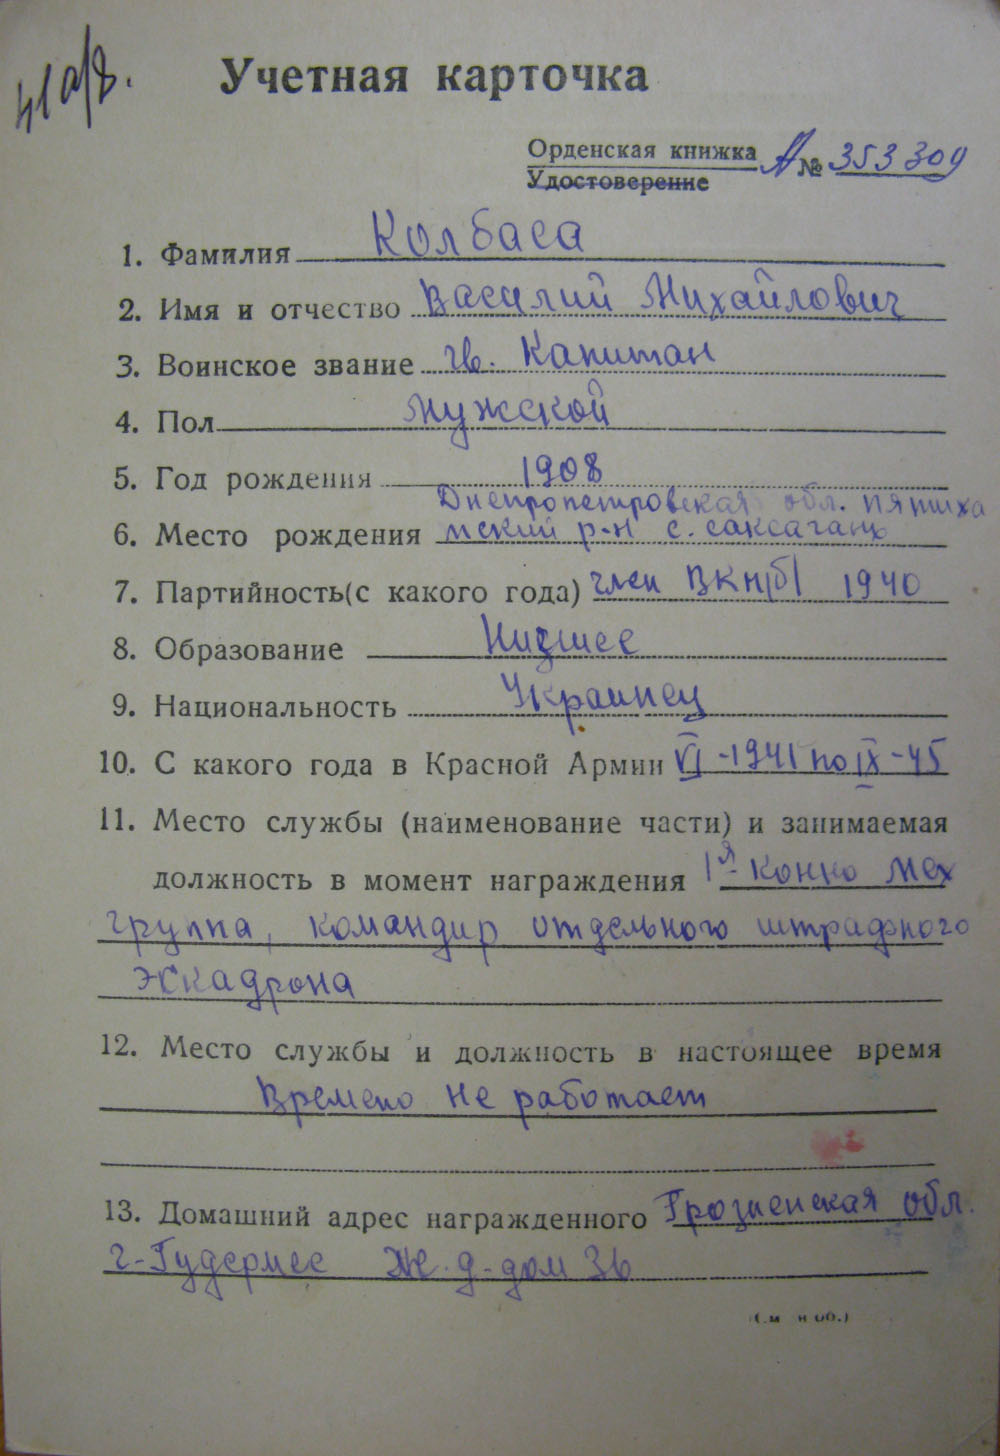 Учетная карточка
Орденская книжка А № 353309
Удостоверение
1. Фамилия Колбаса
2. Имя и отчество Василий Михайлович
3. Воинское звание гв. Капитан
4. Пол Мужской
5. Год рождения 1908
Днепропетровская обл. Пятиха
6. Место рождения тский р-н с. саксагань
7. Партийность(с какого года) член ВКП/б/ 1940
8. Образование Низшее
9. Национальность Украинец
10. С какого года в Красной Армии VI-1941 по IX-45
11. Место службы (наименование части) и занимаемая
должность в момент награждения 1я- Конно Мех
группа, командир отдельного штрафного
эскадрона
12. Место службы и должность в настоящее время
Времено не работает
13. Домашний адрес награжденного Грозненская обл.
г-Гудермес Ж.д-дом